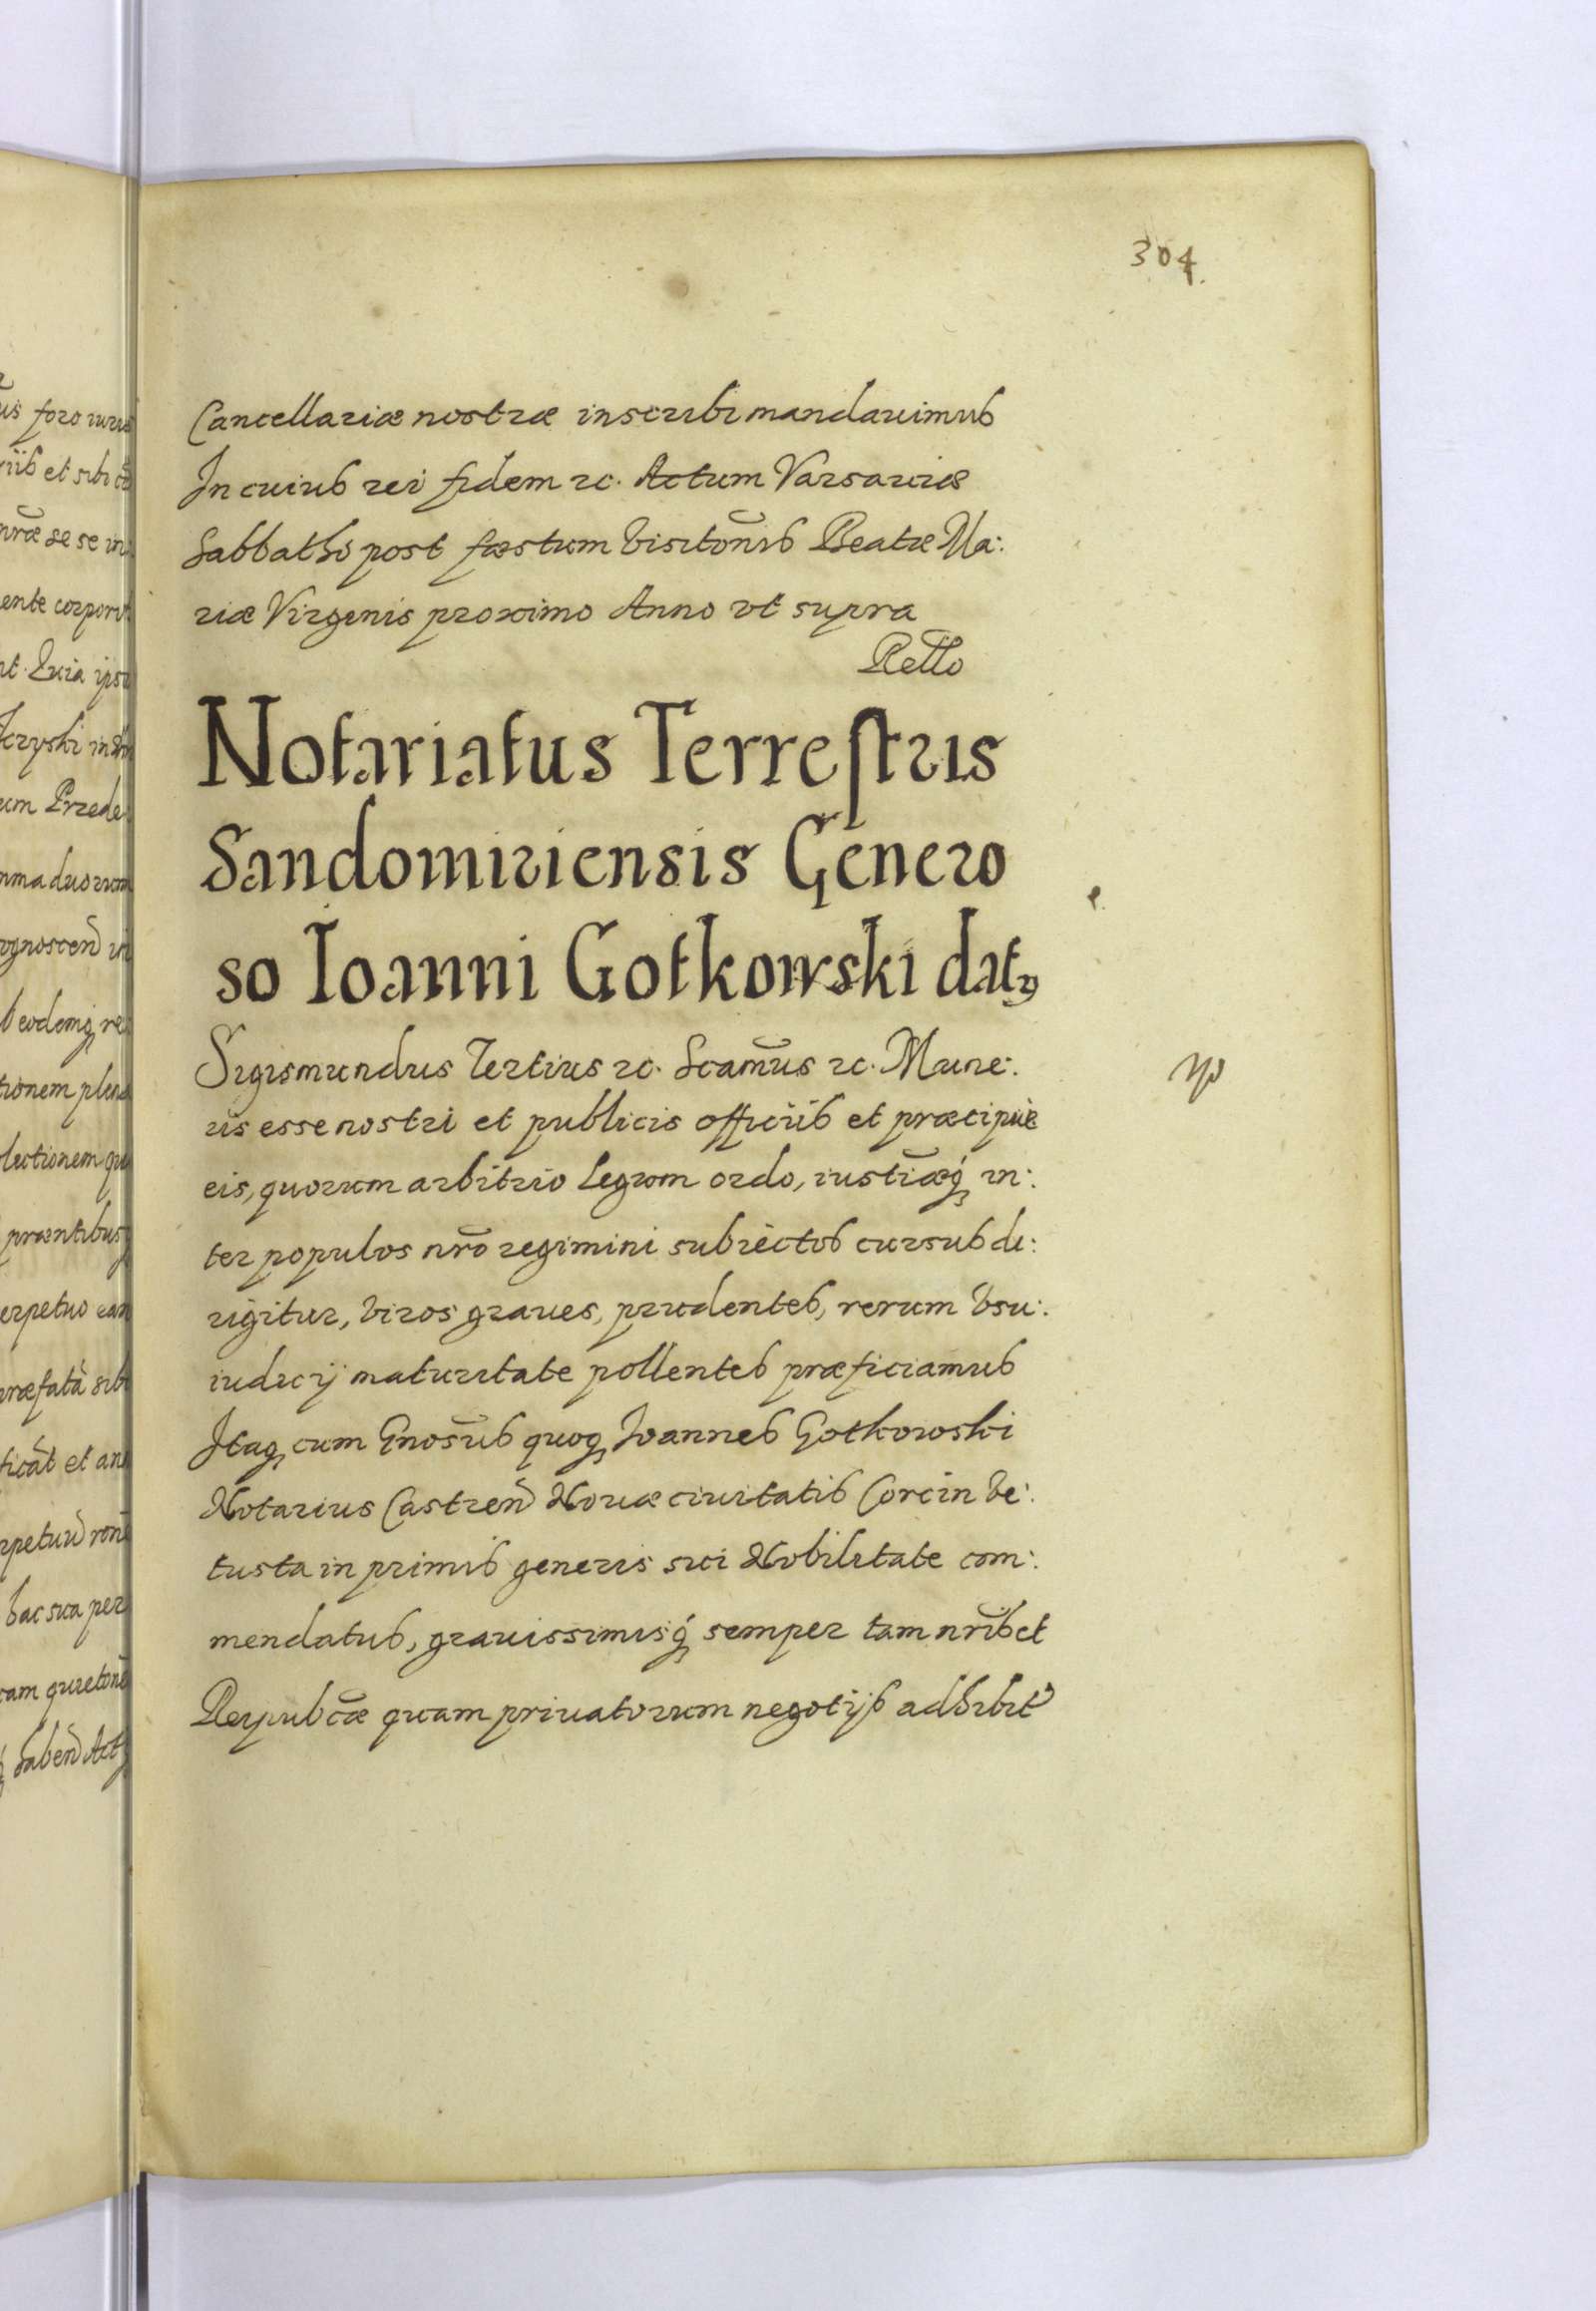 304.
Cancellariæ nostræ inscribi mandauimus
In cuius rei fidem rc. Actum Varsauiæ
Sabbatho post fæstum Visitõnis Beatæ Ma:
riæ Virginis proximo Anno vt supra
Rello
Notariatus Terrestris
Sandomiriensis Genero
so Ioanni Gotkowski datꝫ
Sigismundus Tertius rc. Scam̃us rc. Mune:
ris esse nostri et publicis officiis et præcipuè
eis, quorum arbitrio legum ordo, iustiæ̃qꝫ in:
ter populos nr̃o regimini subiectos cursus di:
rigitur, viros graues, prudentes, rerum vsu:
iudicij maturitate pollentes præficiamus
Itaqꝫ cum Gnosũs quoqꝫ Joannes Gotkowski
Notarius Castren̄ Nouæ ciuitatis Corcin ve:
tusta in primis generis sui Nobilitate com:
mendatus, grauissimisqꝫ semper tam nr̃is et
Reipubcæ̃ quam priuatorum negotijs adhibit9
is foro iuris
iis et sibi
nr̃æ se se in
ente corporis
nt. Quia ipsi
um Przede
mma duorum
ognoscen̄
eodemqꝫ re
tionem plena
lectionem
præntibus
erpetuo
ræfatã sibi
ficãt et
rpetuũ
hac sua per
habeñ Act